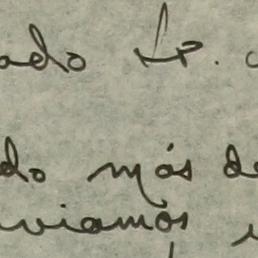 ado Sr.
do más de
viamos